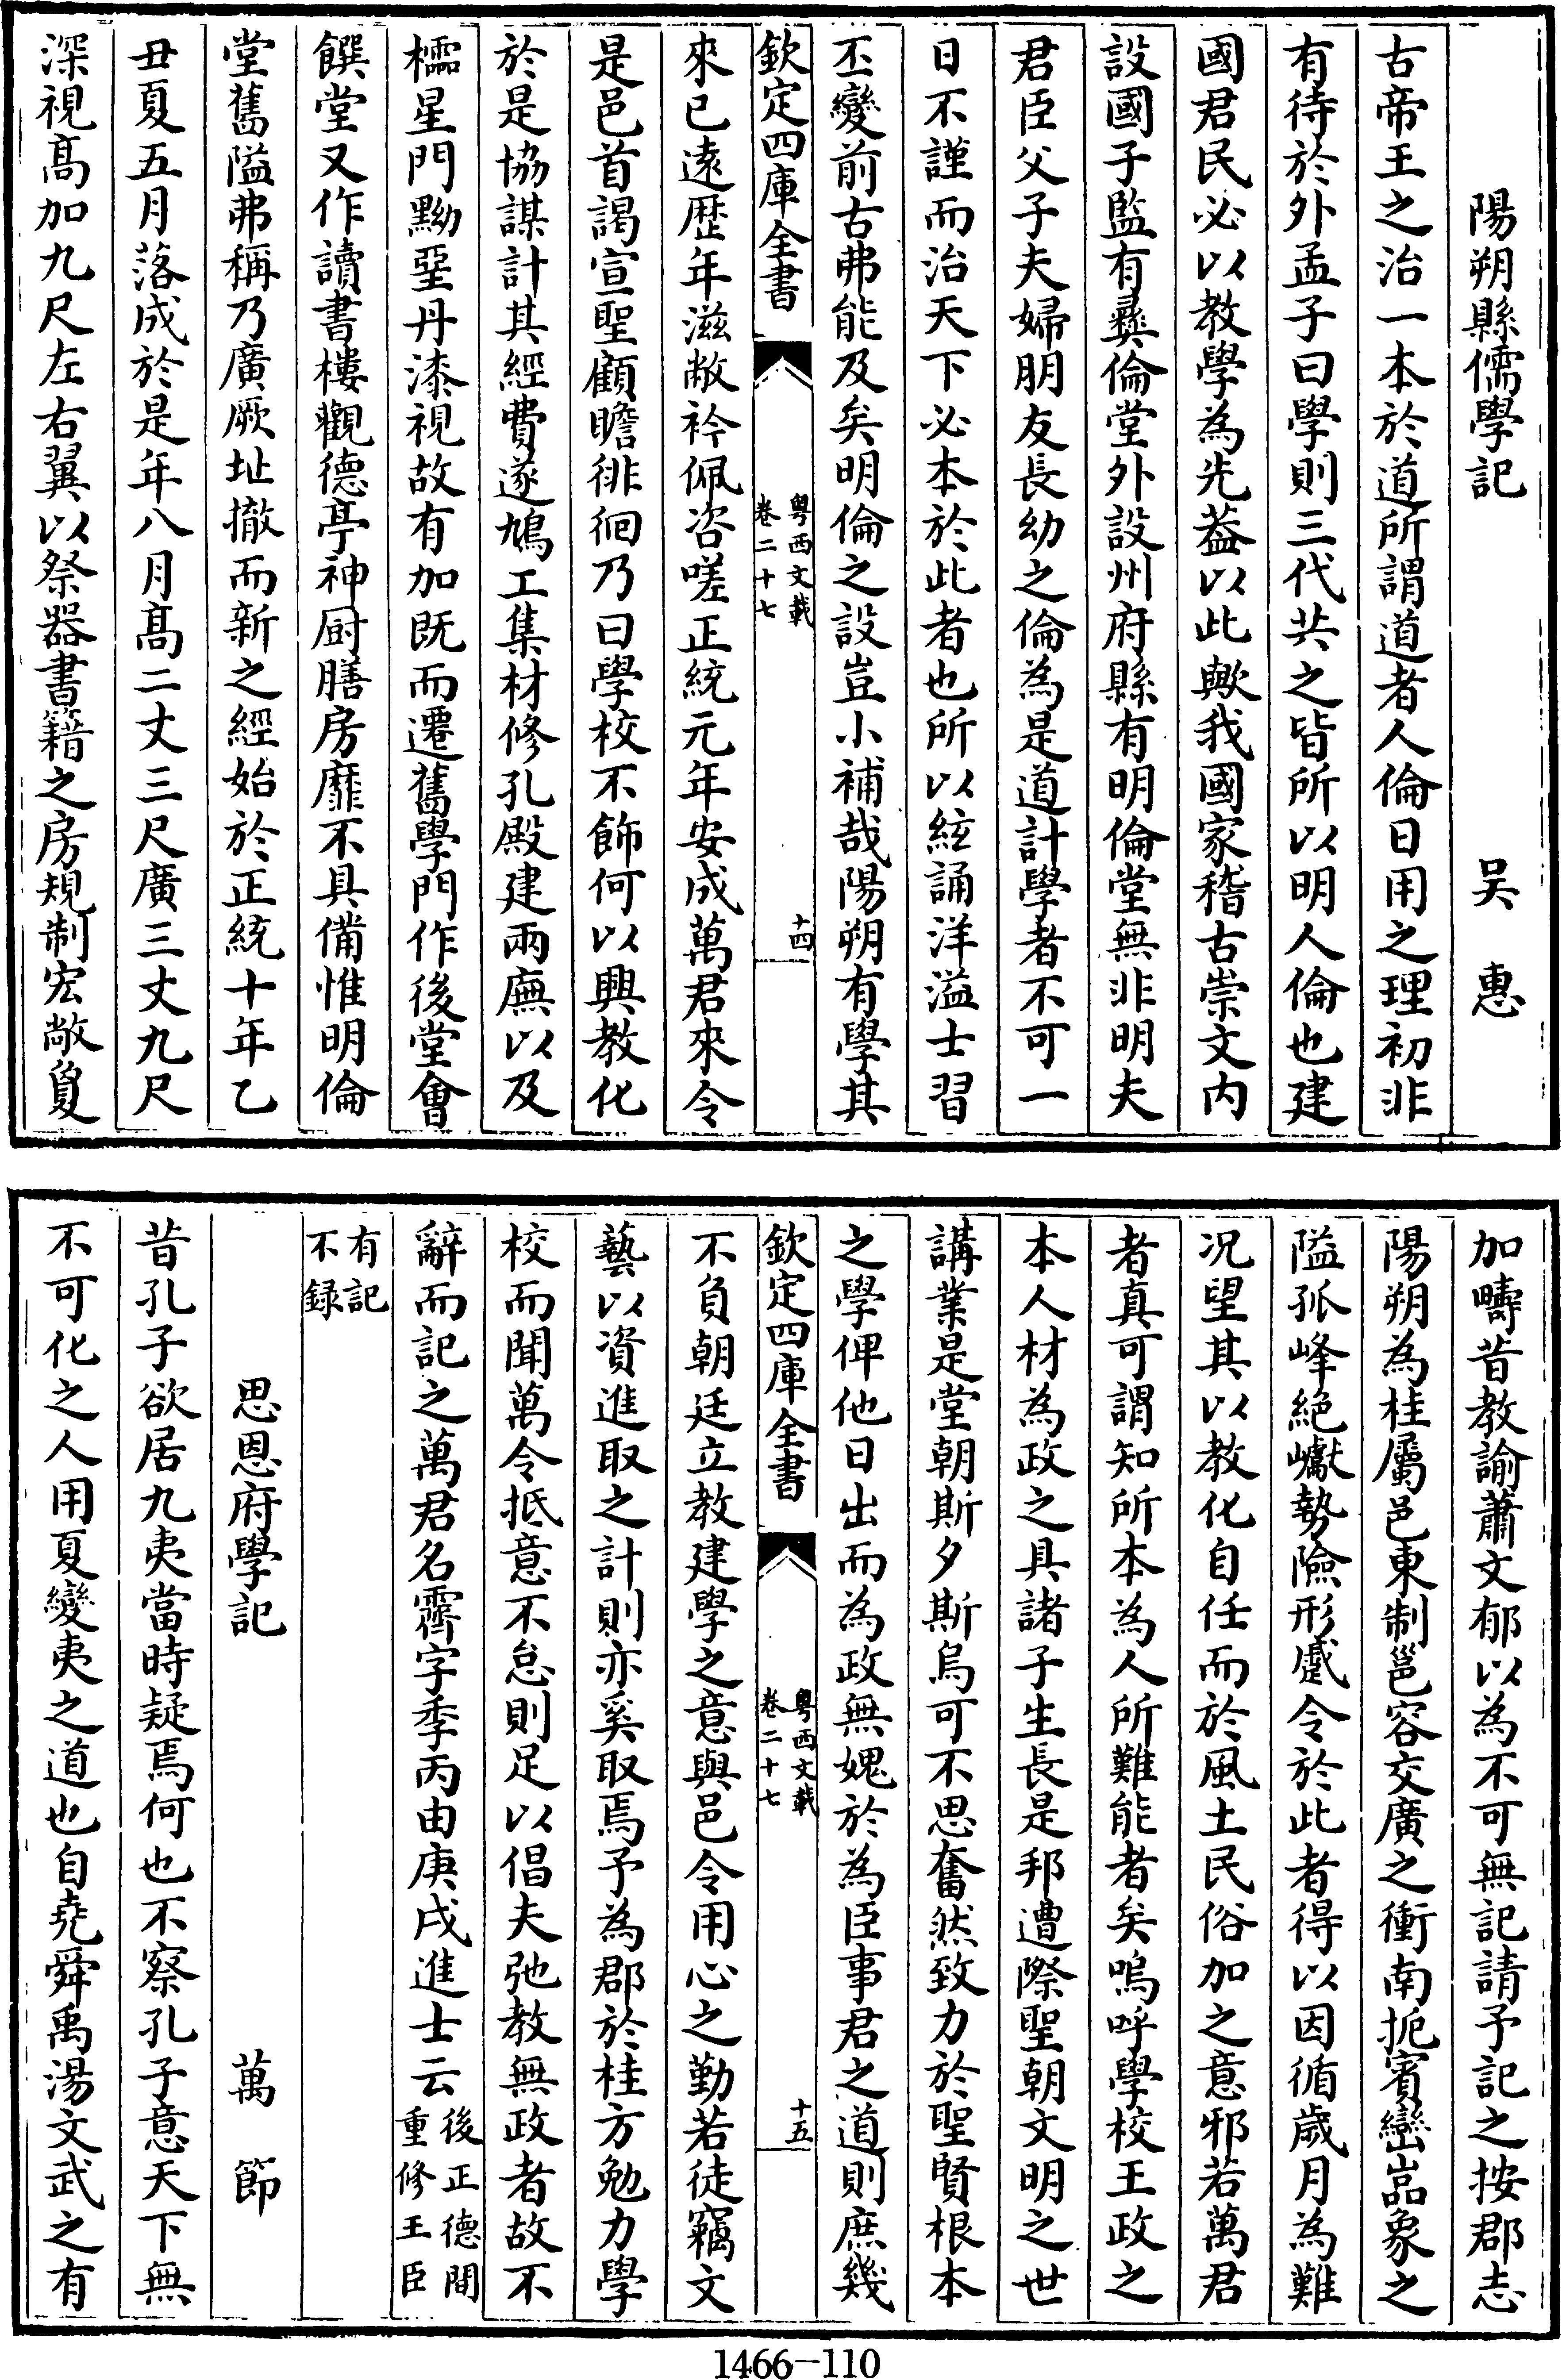 陽朔縣儒學記　吳惠
古帝王之治一本於道所謂道者人倫日用之理初非
有待於外孟子曰學則三代共之皆所以明人倫也建
國君民必以教學為先葢以此歟我國家稽古崇文内
設國子監有彝倫堂外設州府縣有明倫堂無非明夫
君臣父子夫婦朋友長幼之倫為是道計學者不可一
日不謹而治天下必本於此者也所以絃誦洋溢士習
丕變前古弗能及矣明倫之設豈小補哉陽朔有學其
欽定四庫全書　粵西文載卷二十七　十四
來已遠歴年滋敝衿佩咨嗟正統元年安成萬君來令
是邑首謁宣聖顧瞻徘徊乃曰學校不飾何以興教化
於是協謀計其經費遂鳩工集材修孔殿建兩廡以及
櫺星門黝堊丹漆視故有加既而遷舊學門作後堂會
饌堂又作讀書樓觀德亭神厨膳房靡不具備惟明倫
堂舊隘弗稱乃廣厥址撤而新之經始於正統十年乙
丑夏五月落成於是年八月髙二丈三尺廣三丈九尺
深視髙加九尺左右翼以祭器書籍之房規制宏敞夐
加疇昔教諭蕭文郁以為不可無記請予記之按郡志
陽朔為桂屬邑東制邕容交廣之衝南扼賔巒嵓象之
隘孤峰絶巘勢險形蹙令於此者得以因循歲月為難
况望其以教化自任而於風土民俗加之意邪若萬君
者真可謂知所本為人所難能者矣嗚呼學校王政之
本人材為政之具諸子生長是邦遭際聖朝文明之世
講業是堂朝斯夕斯烏可不思奮然致力於聖賢根本
之學俾他日出而為政無媿於為臣事君之道則庶幾
欽定四庫全書　粵西文載卷二十七　十五
不負朝廷立教建學之意與邑令用心之勤若徒竊文
藝以資進取之計則亦奚取焉予為郡於桂方勉力學
校而聞萬令抵意不怠則足以倡夫弛教無政者故不
辭而記之萬君名霽字季丙由庚戌進士云後正德間重修王臣
有記不録
思恩府學記　萬節
昔孔子欲居九夷當時疑焉何也不察孔子意天下無
不可化之人用夏變夷之道也自堯舜禹湯文武之有
1466—110